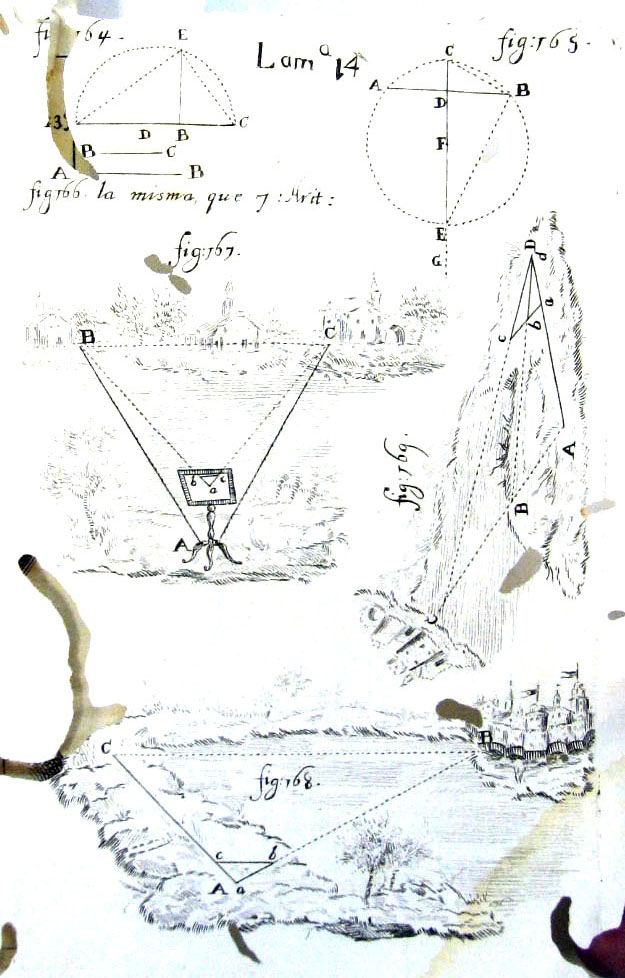 fig:164.
Lamª 14
fig:165.
E
C
A
B
D
F
E
G
D
B
C
B
C
A
B
fig 166. la misma que 7: Arit:
fig:167.
B
C
b
c
a
A
fig 169.
D
d
a
b
c
A
B
C
B
fig:168.
c
b
A
a